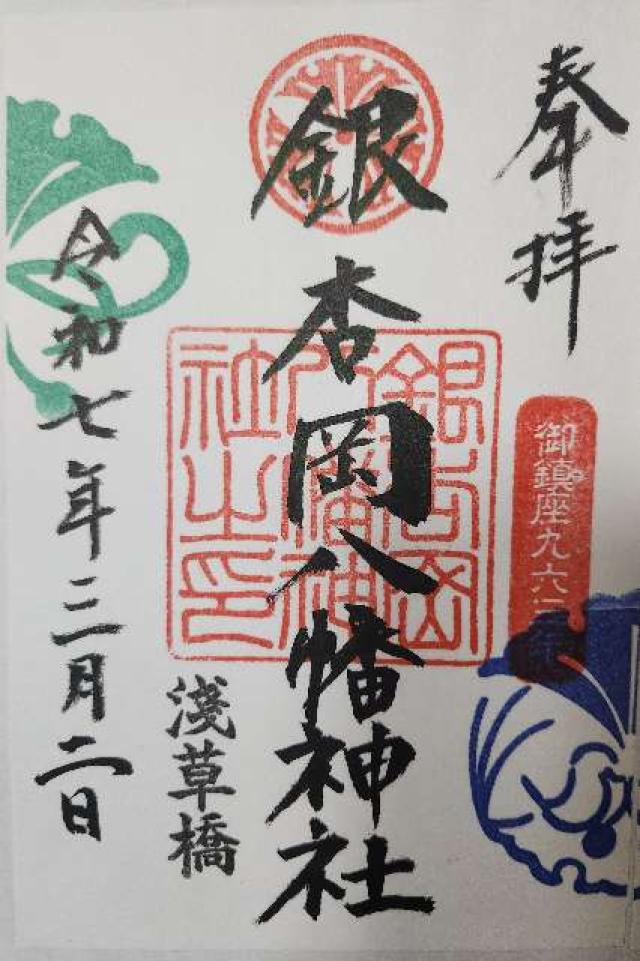 奉拝
御鎮座九六
銀杏岡八幡神社
銀杏岡
八幡神
社之印
淺草橋
令和七年三月二日